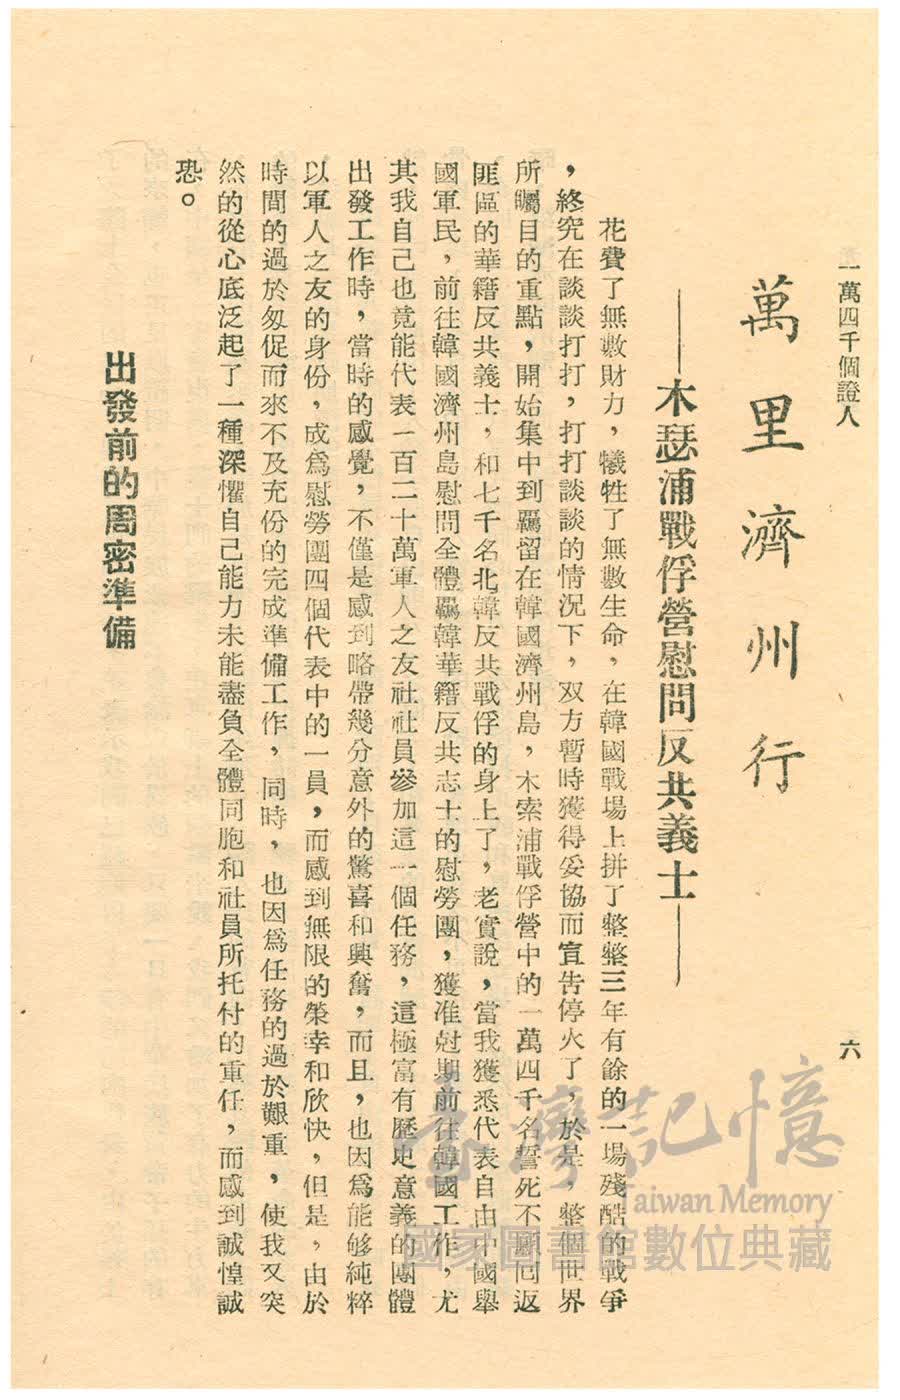 一萬四千個證人
六
萬里濟州行
——木瑟浦戰俘營慰問反共義士——
花費了無數財力，犧牲了無數生命，在韓國戰場上拼了整整三年有餘的一場殘酷的戰爭
，終究在談談打打，打打談談的情況下，双方暫時獲得妥協而宣告停火了，於是，整個世界
所矚目的重點，開始集中到羈留在韓國濟州島，木索浦戰俘營中的一萬四千名誓死不願回返
匪區的華籍反共義士，和七千名北韓反共戰俘的身上了，老實說，當我獲悉代表自由中國舉
國軍民，前往韓國濟州島慰問全體羈韓華籍反共志士的慰勞團，獲准尅期前往韓國工作，尤
其我自己也竟能代表一百二十萬軍人之友社社員參加這一個任務，這極富有歷史意義的團體
出發工作時，當時的感覺，不僅是感到略帶幾分意外的驚喜和興奮，而且，也因爲能够純粹
以軍人之友的身份，成爲慰勞團四個代表中的一員，而感到無限的榮幸和欣快，但是，由於
時間的過於匆促而來不及充份的完成準備工作，同時，也因爲任務的過於艱重，使我又突
然的從心底泛起了一種深懼自己能力未能盡負全體同胞和社員所托付的重任，而感到誠惶誠
恐。
出發前的周密準備
臺灣記憶
Taiwan Memory
國家圖書館數位典藏